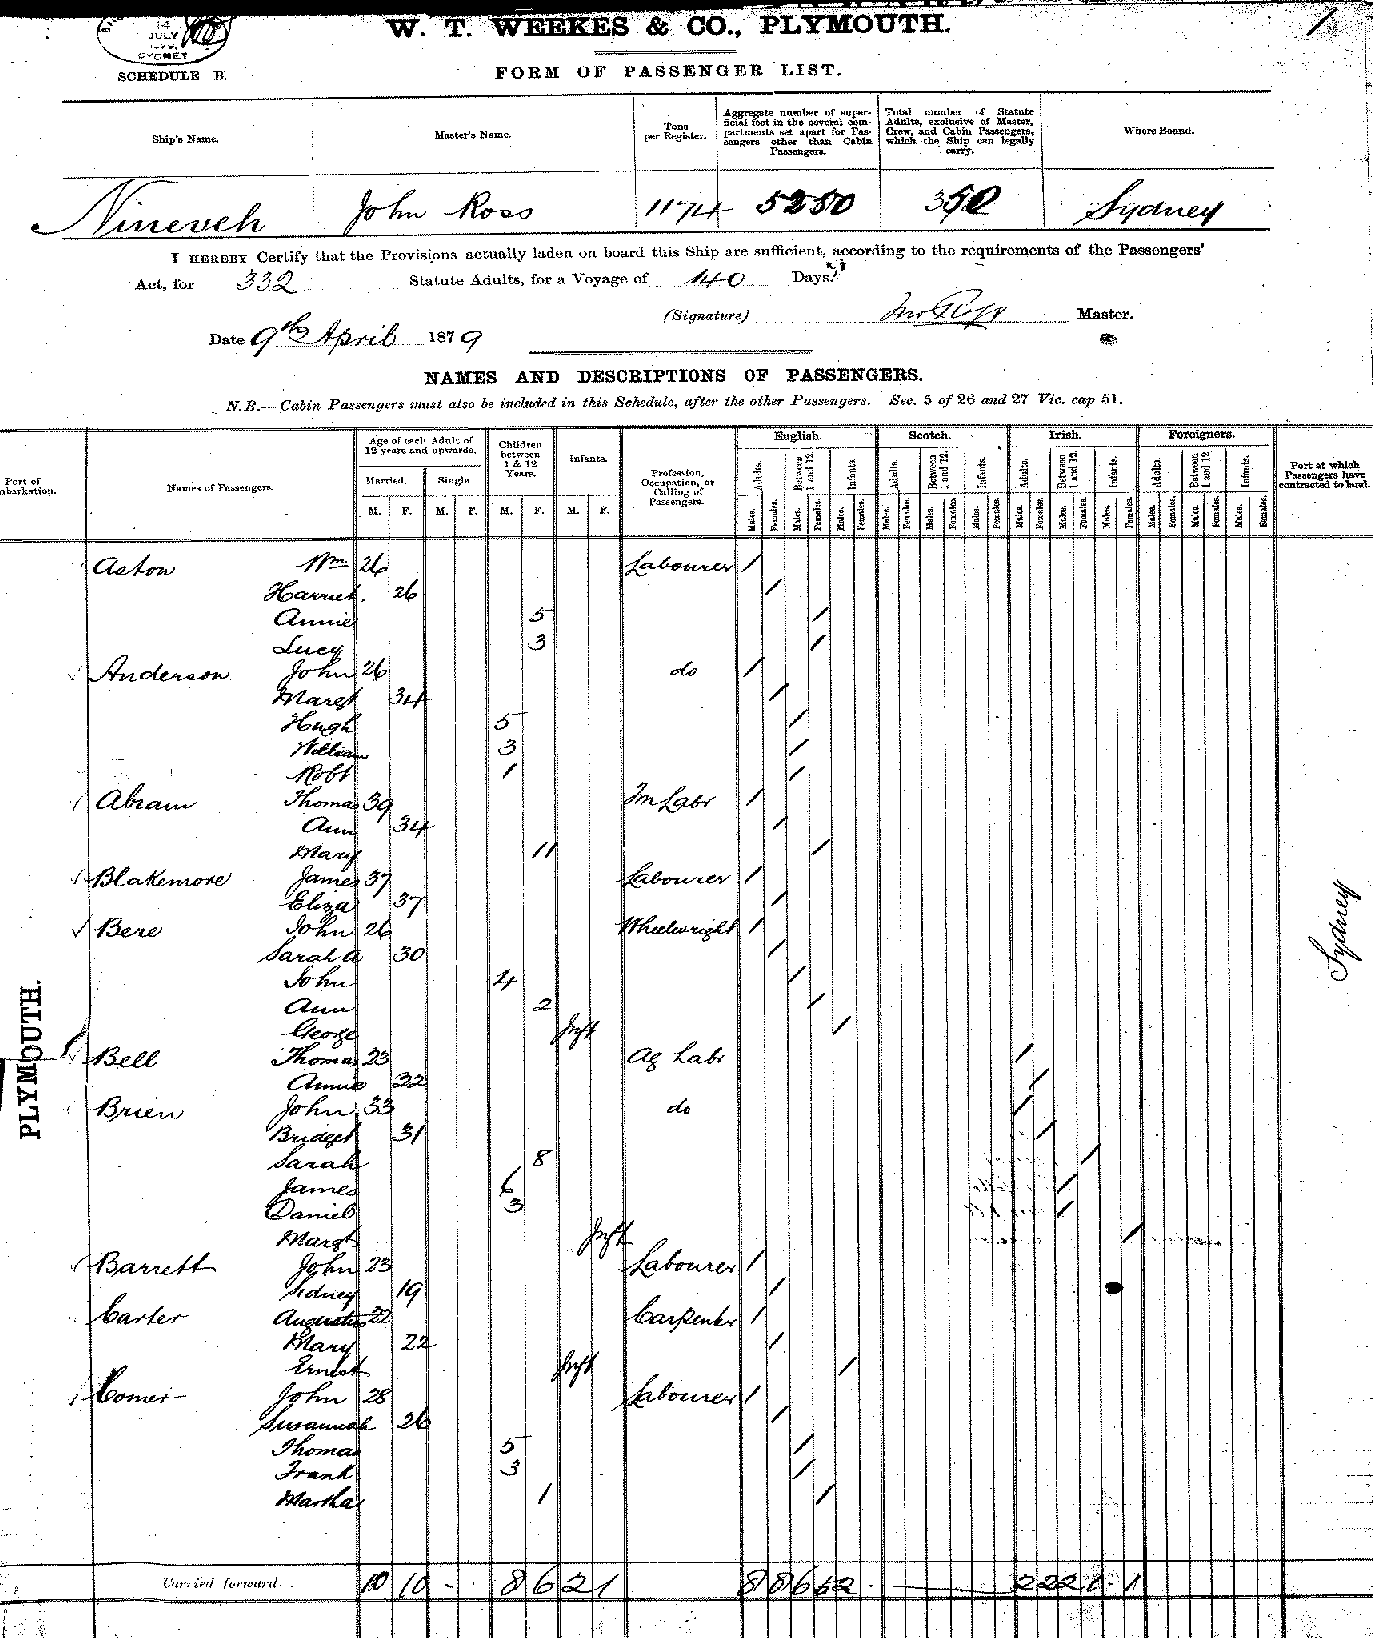 14
JULY
SYDNEY
W. T. WEEKES & CO., PLYMOUTH.
1
SCHEDULE B.
FORM OF PASSENGER LIST.
Ship's Name. Master's Name. Tons per Register. Aggregate number of superficial feet in the several compartments set apart for Passengers other than Cabin Passengers. Total number of Statute Adults, exclusive of Master, Crew, and Cabin Passengers, which the Ship can legally carry. Where Bound.
Nineveh John Ross 1174 5250 350 Sydney
I HEREBY Certify that the Provisions actually laden on board this Ship are sufficient, according to the requirements of the Passengers'
Act, for 332 Statute Adults, for a Voyage of 140 Days.
(Signature) Jno Ross Master.
Date 9th April 1879
NAMES AND DESCRIPTIONS OF PASSENGERS.
N.B.—Cabin Passengers must also be included in this Schedule, after the other Passengers. Sec. 5 of 26 and 27 Vic. cap 51.
Port of Embarkation. Names of Passengers. Age of each Adult of 12 years and upwards. Children between 1 & 12 Years. Infants. Profession, Occupation, or Calling of Passengers. English. Scotch. Irish. Foreigners. Port at which Passengers have contracted to land.
Married. Single Adults. Between 1 and 12. Infants Adults. Between 1 and 12. Infants. Adults. Between 1 and 12. Infants. Adults. Between 1 and 12. Infants.
M. F. M. F. M. F. M. F. Males. Females. Males. Females. Males. Females. Males. Females. Males. Females. Males. Females. Males. Females. Males. Females. Males. Females. Males. Females. Males. Females. Males. Females.
Aston Wm 26 Labourer /
Harriet. 26 /
Annie 5 /
Lucy 3 /
Anderson John 26 do /
Margt 34 /
Hugh 5 /
William 3 /
Robt 1 /
Abram Thomas 39 Fm Labr /
Ann 34 /
Mary 11 /
Blakemore James 37 Labourer /
Eliza 37 /
Bere John 26 Wheelwright /
Sarah A 30 /
John 4 /
Ann 2 /
George Inft /
Bell Thomas 23 Ag Labr /
Annie 22 /
Brien John 33 do /
Bridget 31 /
Sarah 8 /
James 6 /
Daniel 3 /
Margt Inft /
Barrett John 23 Labourer /
Sidney 19 /
Carter Augustus 22 Carpenter /
Mary 22 /
Ernest Inft /
Comer John 28 Labourer /
Susannah 26 /
Thomas 5 /
Frank 3 /
Martha 1 /
PLYMOUTH.
Sydney
Carried forward 10 10 - 8 6 2 1 8 8 6 5 2 2 2 2 1 . 1